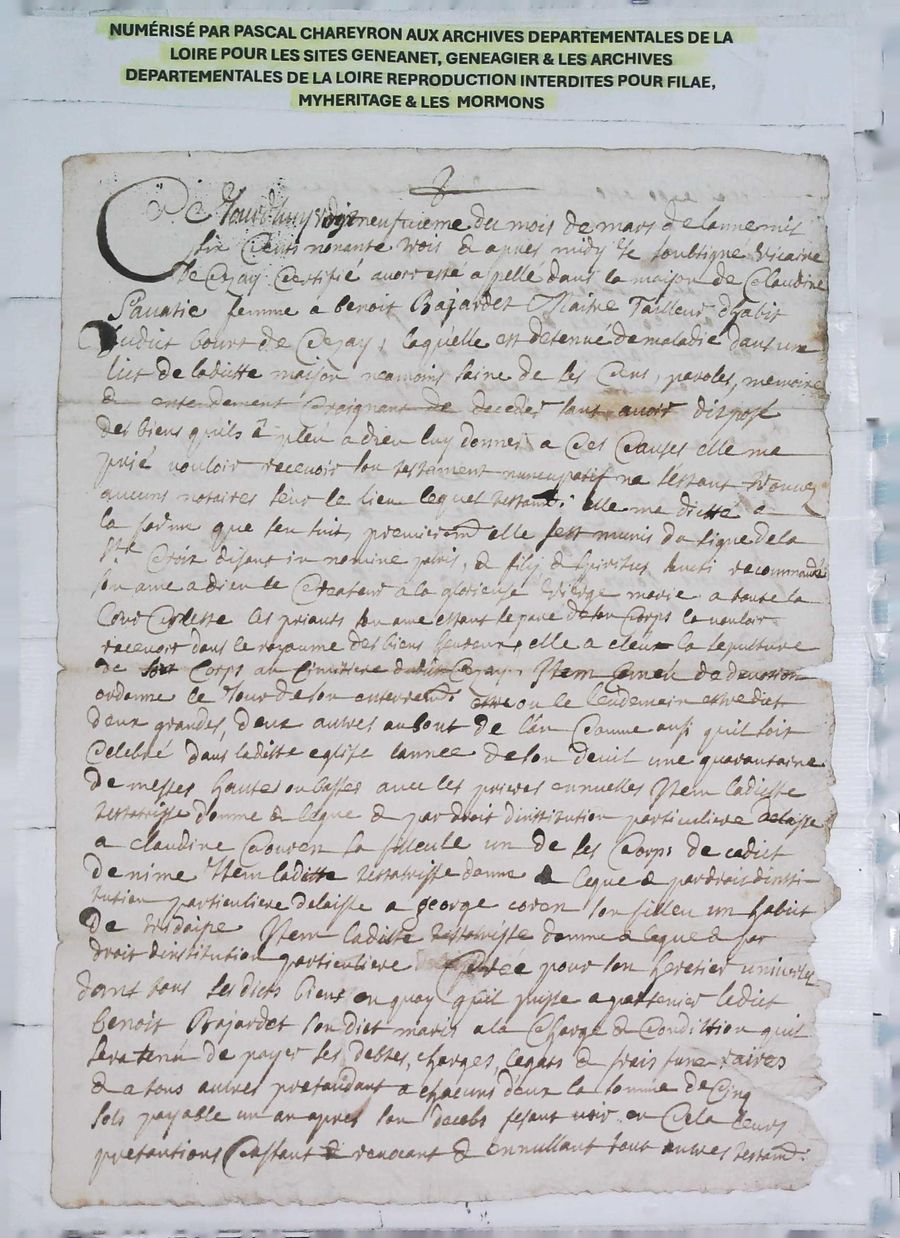 NUMÉRISÉ PAR PASCAL CHAREYRON AUX ARCHIVES DEPARTEMENTALES DE LA
LOIRE POUR LES SITES GENEANET, GENEAGIER & LES ARCHIVES
DEPARTEMENTALES DE LA LOIRE REPRODUCTION INTERDITES POUR FILAE,
MYHERITAGE & LES MORMONS
Ce Jourdhuy dixneufvieme du mois de mars de lanne mil
six Cents nonante trois & apres midy Je soubsigné vicaire
de Cezay Certifié avoir esté apelle dans la maison de Claudine
femme a benoit Bajardet Maitre Tailleur dhabit
dudict bourt de Cezay, laquelle est detenue de maladie dans un
lict de laditte maison neamoins saine de ses Cens, paroles, memoire
& entendement Craignant de deceder sans avoir disposé
des biens quils â pleu a dieu luy donner a Ces Causes elle ma
prié vouloir recevoir son testament nuncupatif ne sestant trouvez
aucuns notaires seur le lieu lequel testamt elle ma dictté a
la forme que sen suit, premieremt elle sest munis du signe de la
Ste Croix disant in nomine patris, & filij & spiritus sancti recommandé
son ame a dieu le Createur a la glorieuse vierge marie a toute la
Cour Celeste les priants son ame estant separe de son Corps la vouloir
recevoir dans le royaume des biens heureux, elle a eleüe la sepulture
de son Corps au Cimittiere dudit Cezay, Item de devotion
ordonne le Jour de son enterremt ou le lendemain estre dict
deux grandes, deux autres au bout de lan Comme ausi quil soit
Celebré dans laditte eglise lannee de son deuil une quarantaine
de messes hautes ou basses avec les prieres annuelles Item laditte
testatrisse donne & legue & par droit dinstitution particuliere delaisse
a claudine Couren sa filleule un de ses Corps de cadict
de nime Item laditte testatrisse donne & legue & par droit dinsti
tution particuliere delaisse a george coren son filleu un habit
de Item laditte testatrisse donne & legue & par
droit dinstitution particuliere pour son heretier universel
dans tous ses dicts biens en quoy quil puisse apartenir ledict
benoit Bajardet son dict maris a la Charge & Condittion quil
sera tenu de payer ses dettes, charges, legats & frais funeraires
& a tous autres pretandant a chacuns deux la somme de Cinq
sols payable un an apres son decebs fesant en Cela leurs
pretantions Cassant & revocant & annullant tout autres testamt